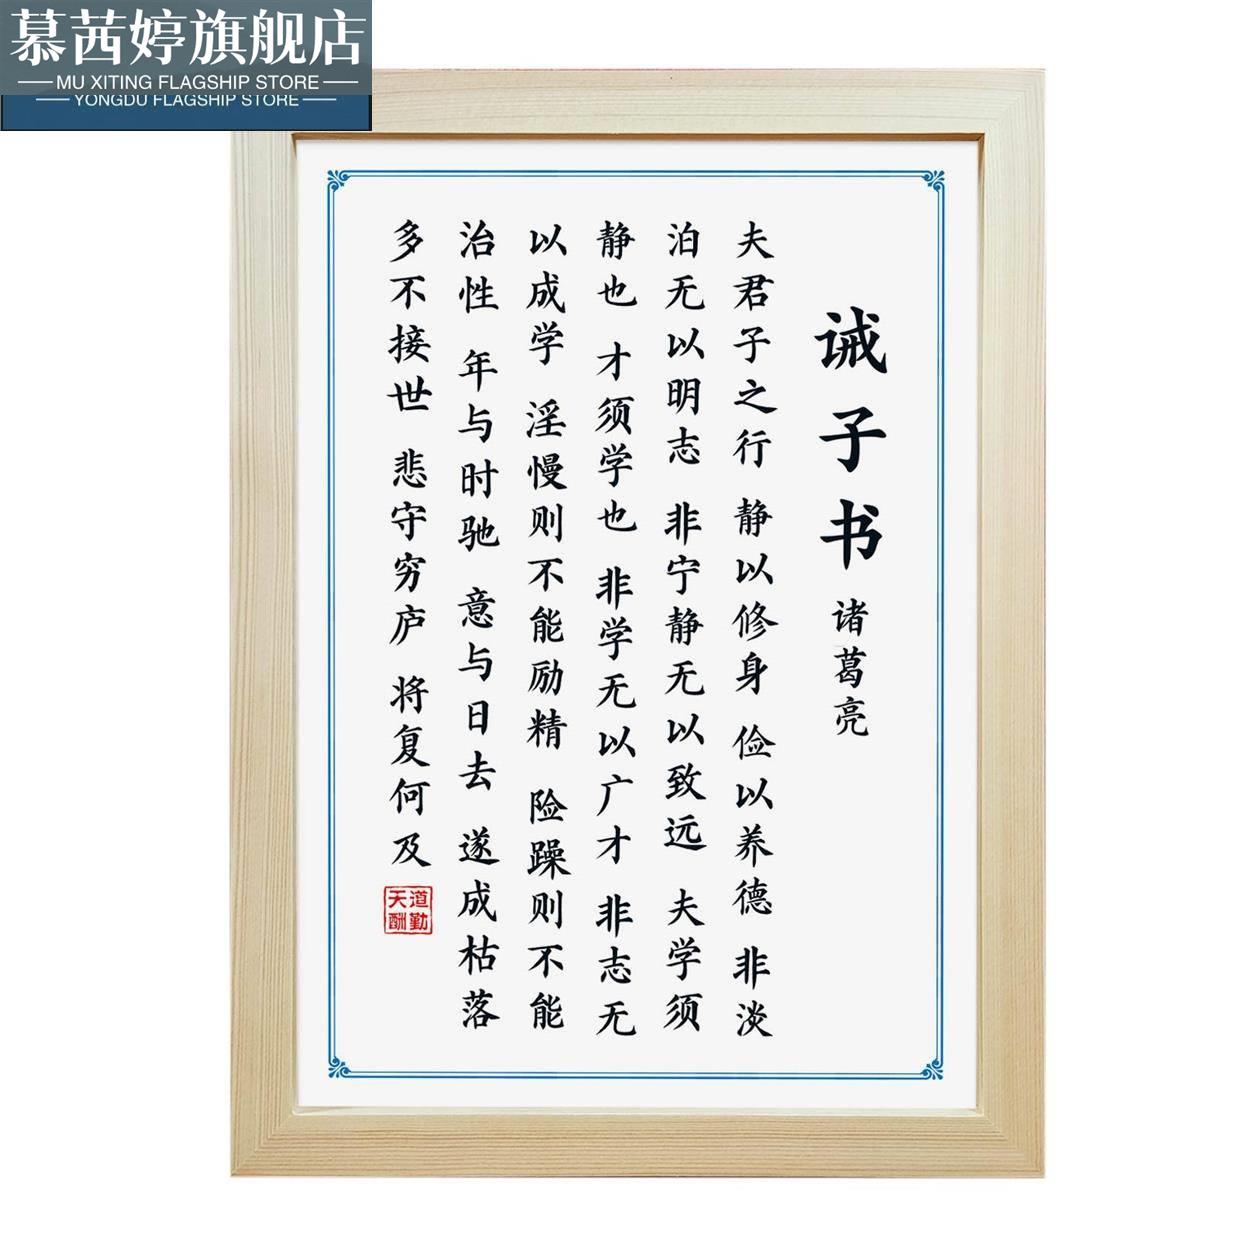 慕茜婷旗舰店
MU XITING FLAGSHIP STORE
YONGDU FLAGSHIP STORE
诫子书 诸葛亮
夫君子之行 静以修身 俭以养德 非淡
泊无以明志 非宁静无以致远 夫学须
静也 才须学也 非学无以广才 非志无
以成学 淫慢则不能励精 险躁则不能
治性 年与时驰 意与日去 遂成枯落
多不接世 悲守穷庐 将复何及
道勤
天酬